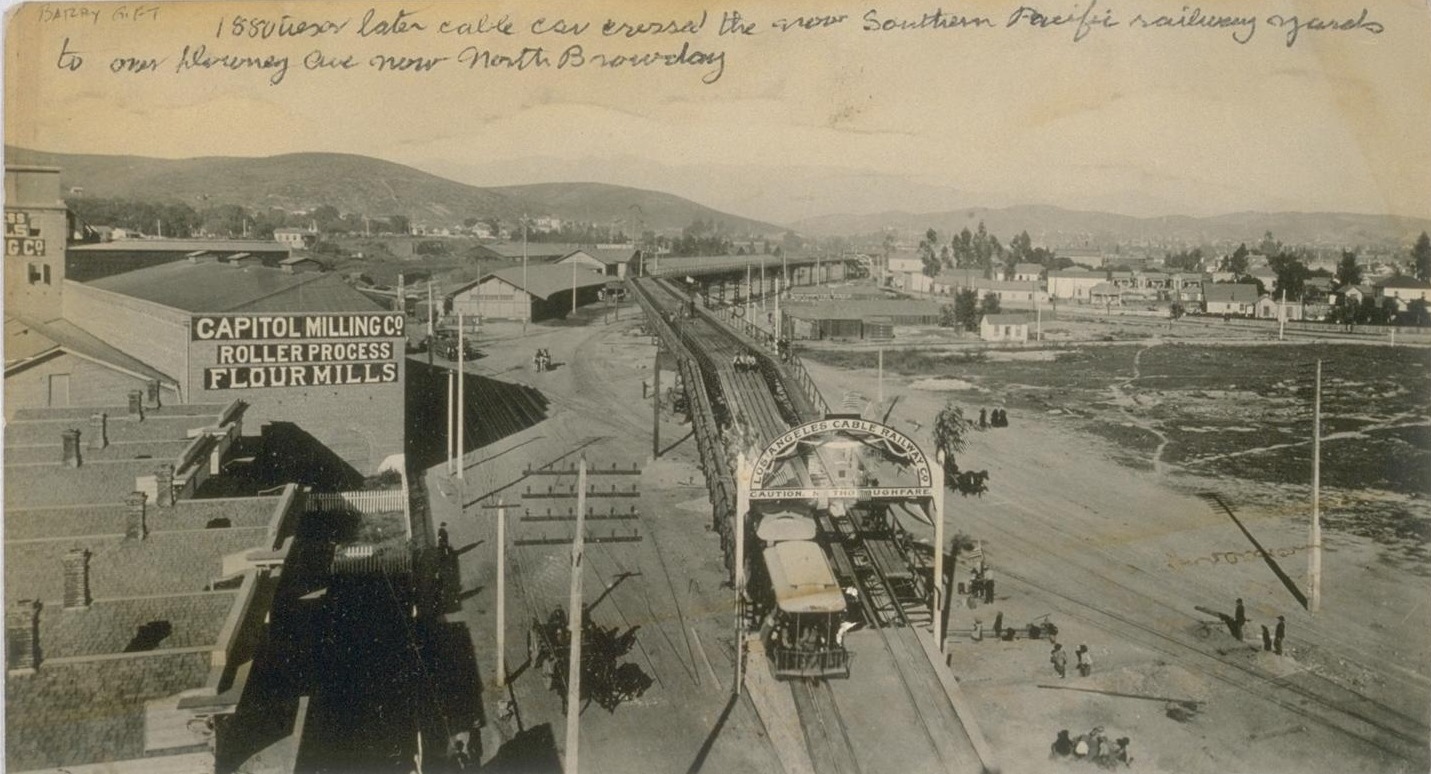 BARRY GIFT
1880 later cable car crossed the now Southern Pacific railway yards
to over Downey Ave now North Broadway
SS
LS
G CO
CAPITOL MILLING CO
ROLLER PROCESS
FLOUR MILLS
LOS ANGELES CABLE RAILWAY CO
CAUTION. N THO UGHFARE.